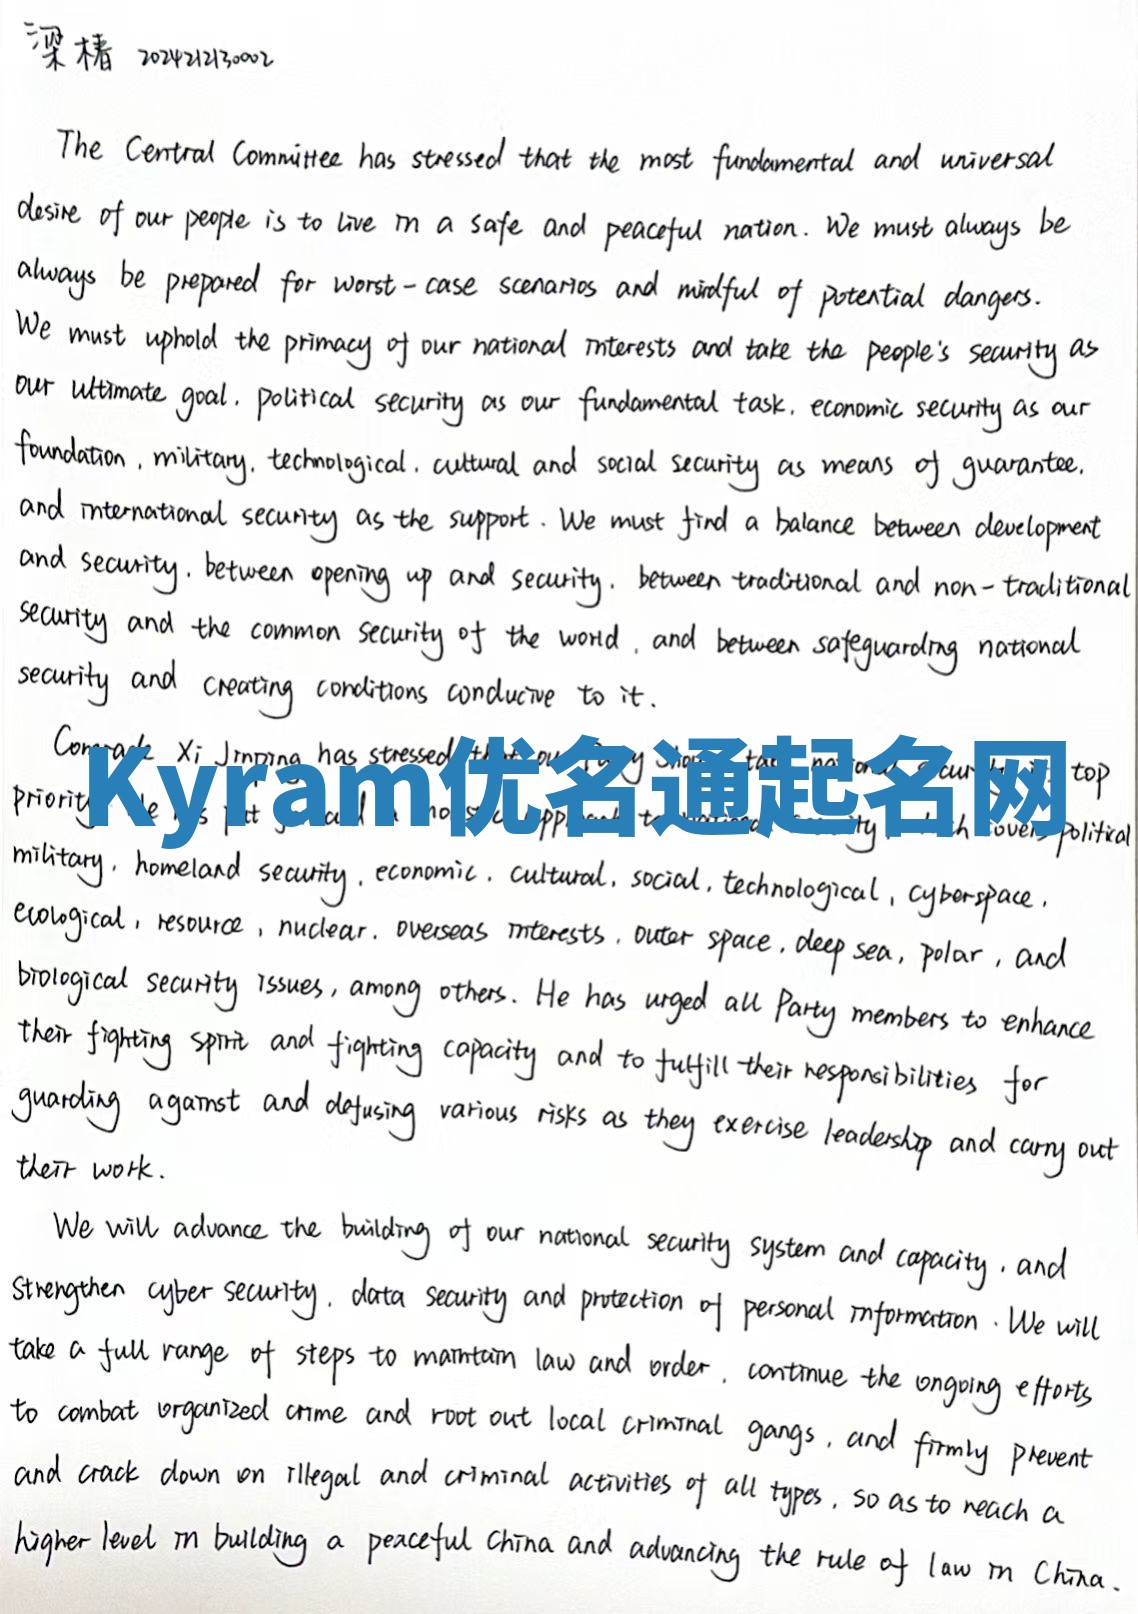 梁椿 2024212130002
The Central Committee has stressed that the most fundamental and universal
desire of our people is to live in a safe and peaceful nation. We must always be
always be prepared for worst-case scenarios and mindful of potential dangers.
We must uphold the primacy of our national interests and take the people's security as
our ultimate goal, political security as our fundamental task, economic security as our
foundation, military, technological, cultural and social security as means of guarantee,
and international security as the support. We must find a balance between development
and security, between opening up and security, between traditional and non-traditional
security and the common security of the world, and between safeguarding national
security and creating conditions conducive to it.
Comrade Xi Jinping has stressed that our Party should take national security its top
Kyram优名通起名网
priority. He has put forward a holistic approach to national security, which covers political
military, homeland security, economic, cultural, social, technological, cyberspace,
ecological, resource, nuclear, overseas interests, outer space, deep sea, polar, and
biological security issues, among others. He has urged all Party members to enhance
their fighting spirit and fighting capacity and to fulfill their responsibilities for
guarding against and defusing various risks as they exercise leadership and carry out
their work.
We will advance the building of our national security system and capacity, and
strengthen cyber security, data security and protection of personal information. We will
take a full range of steps to maintain law and order, continue the ongoing efforts
to combat organized crime and root out local criminal gangs, and firmly prevent
and crack down on illegal and criminal activities of all types, so as to reach a
higher level in building a peaceful China and advancing the rule of law in China.